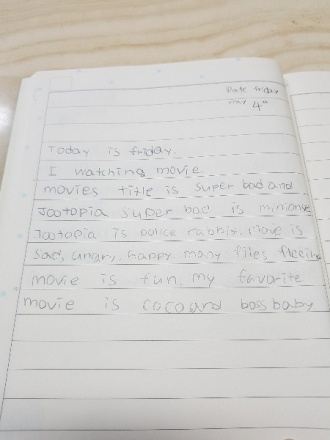 Date friday
may 4th
Today is friday.
I watching movie
movies title is super bad and
Jootopia super bad is minions
Jootopia is police rabbit. Move is
sad, angry, happy many files fleein
movie is fun. my favorite
movie is coco and boss baby